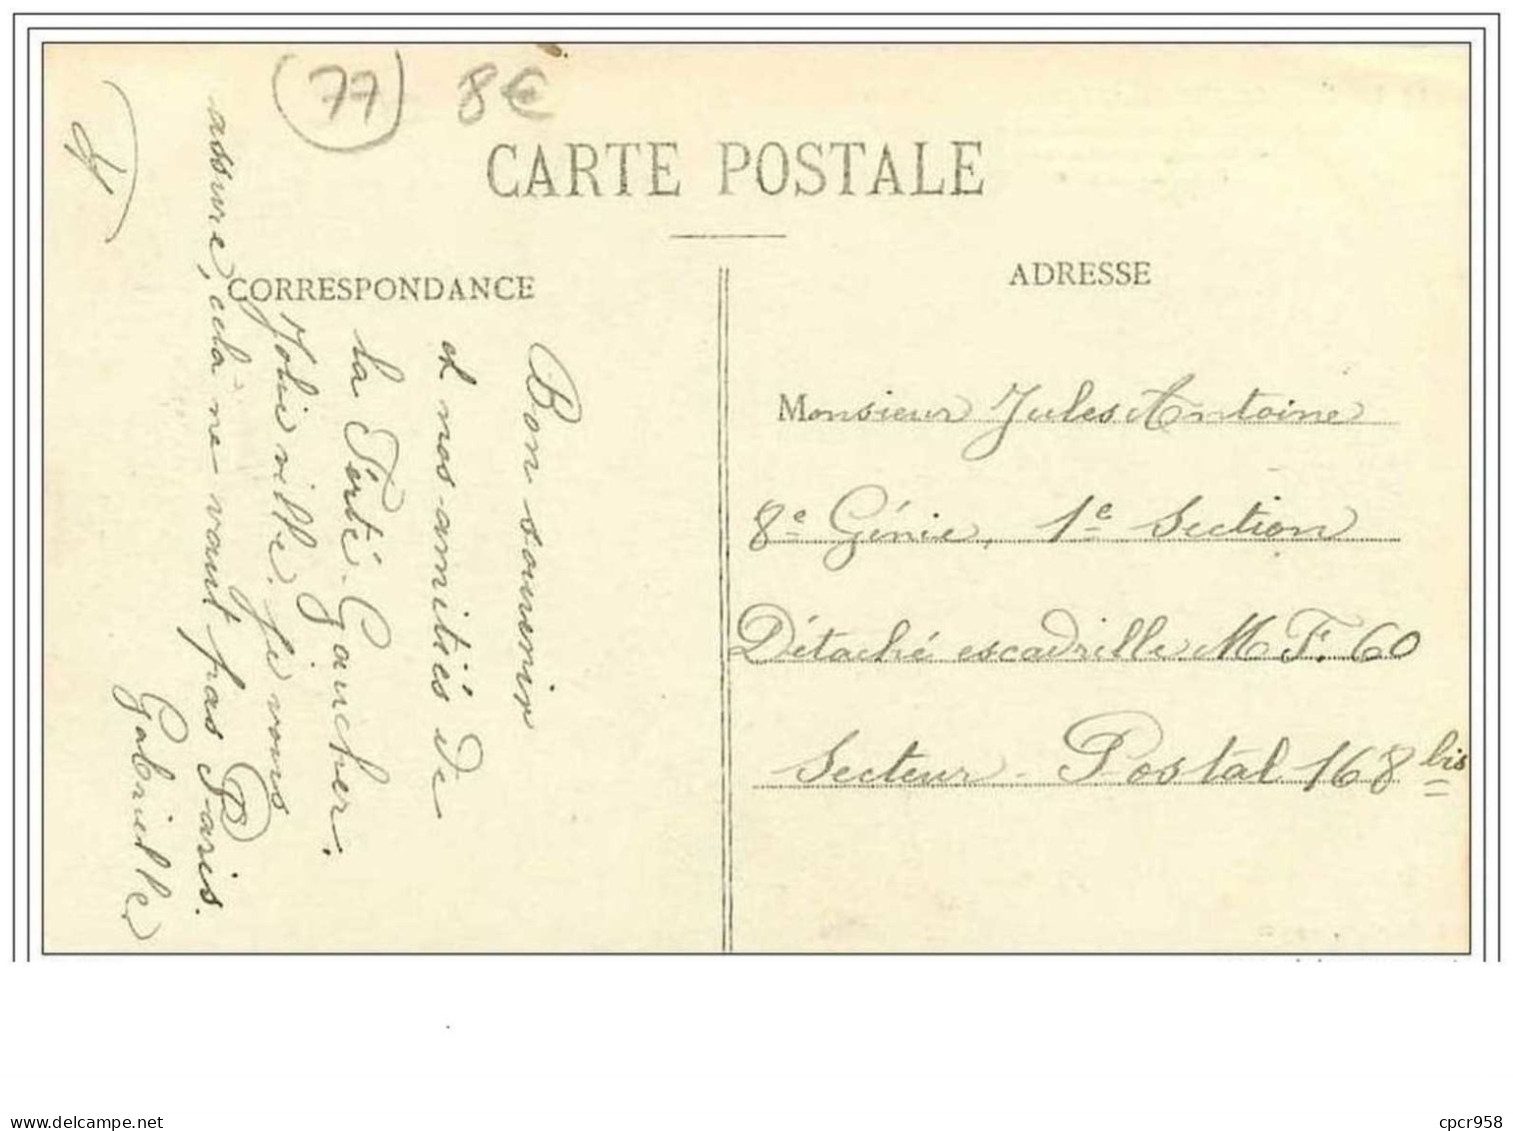 (77) 8€
CARTE POSTALE
CORRESPONDANCE
Bon souvenir
et nos amitiés de
la Ferté-Gaucher.
Jolie ville. Je vous
assure, cela ne vaut pas Paris.
Gabrielle
ADRESSE
Monsieur Jules Antoine
8e Génie, 1e Section
Détaché escadrille M F. 60
Secteur - Postal 168 bis
www.delcampe.net
cpcr958